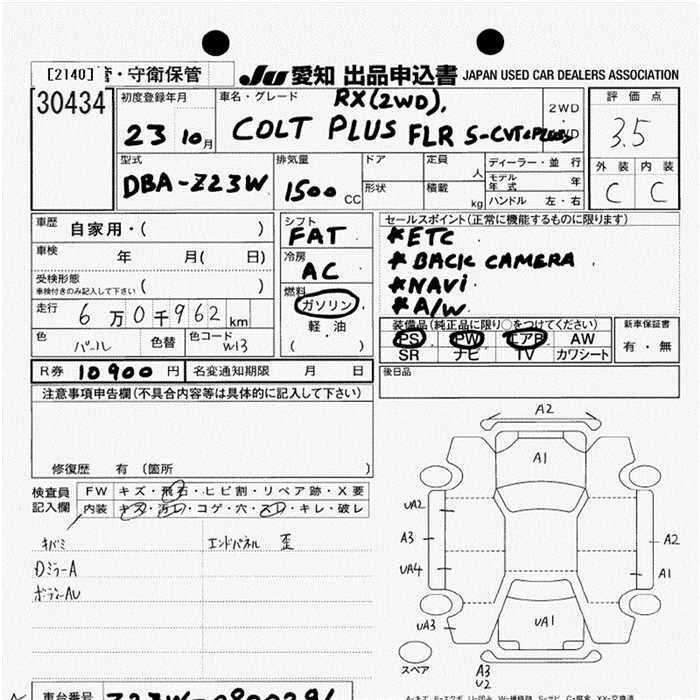 [2140] 管・守衛保管 JU 愛知 出品申込書 JAPAN USED CAR DEALERS ASSOCIATION
30434
初度登録年月
23 10月
車名・グレード RX(2WD).
COLT PLUS FLR S-CVT&PLUS)
2WD
評価点
3.5
外装 内装
C C
型式
DBA-Z23W
排気量
1500 CC
ドア
形状
定員 人
積載 kg
ディーラー・並行
モデル年式 年
ハンドル 左・右
車歴 自家用・( )
車検 年 月( 日)
受検形態
車検付きのみ記入して下さい ( )
走行 6万0千962km
色 パール 色替 色コード W13
シフト
FAT
冷房
AC
燃料
ガソリン
軽・油
( ・ )
セールスポイント(正常に機能するものに限ります)
*ETC
*BACK CAMERA
*NAVi
*A/W
装備品(純正品に限り○をつけてください)
PS PW エアB AW
SR ナビ TV カワシート
新車保証書
有・無
R券 10900円 名変通知期限 月 日
後日品
注意事項申告欄(不具合内容等は具体的に記入して下さい)
修復歴 有 (箇所 )
検査員記入欄
FW キズ・飛石・ヒビ割・リペア跡・X要
内装 キズ・汚レ・コゲ・穴・スレ・キレ・破レ
キバミ エンドパネル 歪
DミラーA
ボディーAU
A2
A1
UA2
A3
UA4
UA3
A2
A1
UA1
スペア
A3
U2
車台番号 Z23W-0800296